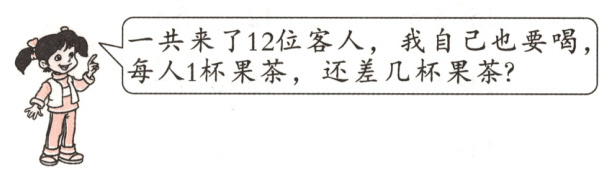 一共来了12位客人，我自己也要喝，
每人1杯果茶，还差几杯果茶？